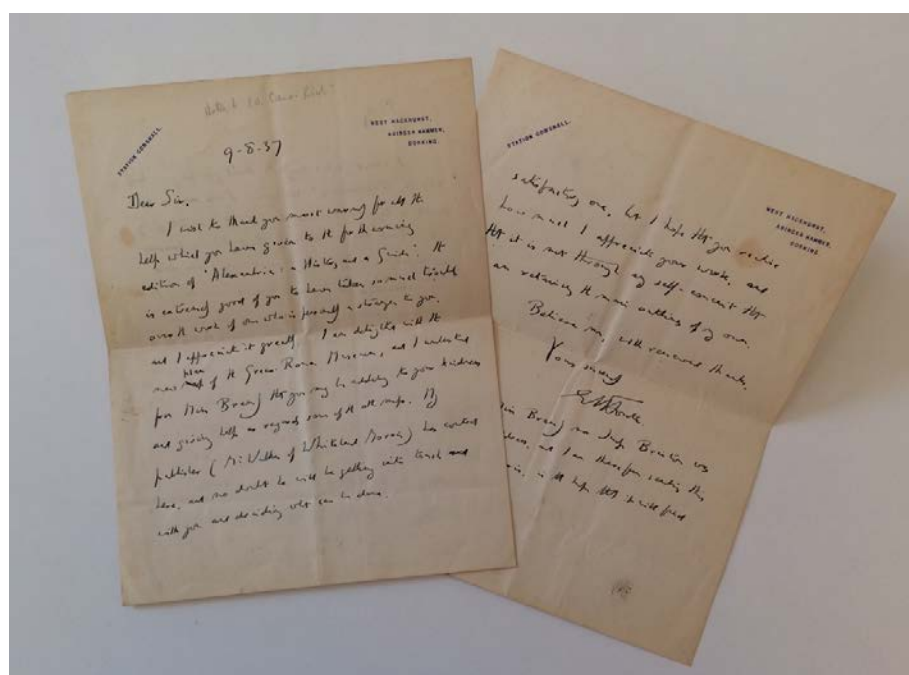 STATION GOMSHALL.
WEST HACKHURST,
ABINGER HAMMER,
DORKING.
9-8-37
Dear Sir,
I wish to thank you most warmly for all the
help which you have given to the forthcoming
edition of 'Alexandria: a History and a Guide'. It
is extremely good of you to have taken so much trouble
over the work of one who is personally a stranger to you,
and I appreciate it greatly. I am delighted with the
new plan of the Graeco-Roman Museum, and I understand
from Miss Breay that you may be adding to your kindness
and giving help as regards some of the other maps. My
publisher (Mr. Walker of Whitehead Morris) has control
here, and no doubt he will be getting into touch
with you and deciding what can be done.
STATION GOMSHALL.
WEST HACKHURST,
ABINGER HAMMER,
DORKING.
satisfactory one, but I hope that you realise
how much I appreciate your work, and
that it is not through any self-conceit that
am retaining the main outlines of my own.
Believe me, with renewed thanks,
Yours sincerely
EMForster
Breay nor Judge Brinton was
and I am therefore sending this
in the hope that it will find